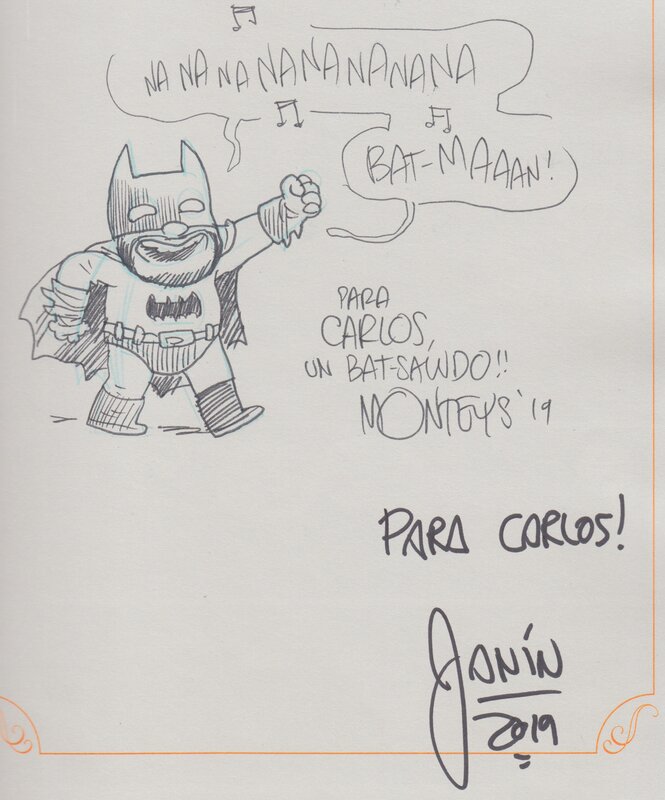 NA NA NA NA NA NA NA NA
BAT-MAAAN!
PARA
CARLOS,
UN BAT-SALUDO!!
MONTEYS '19
PARA CARLOS!
JANÍN
2019